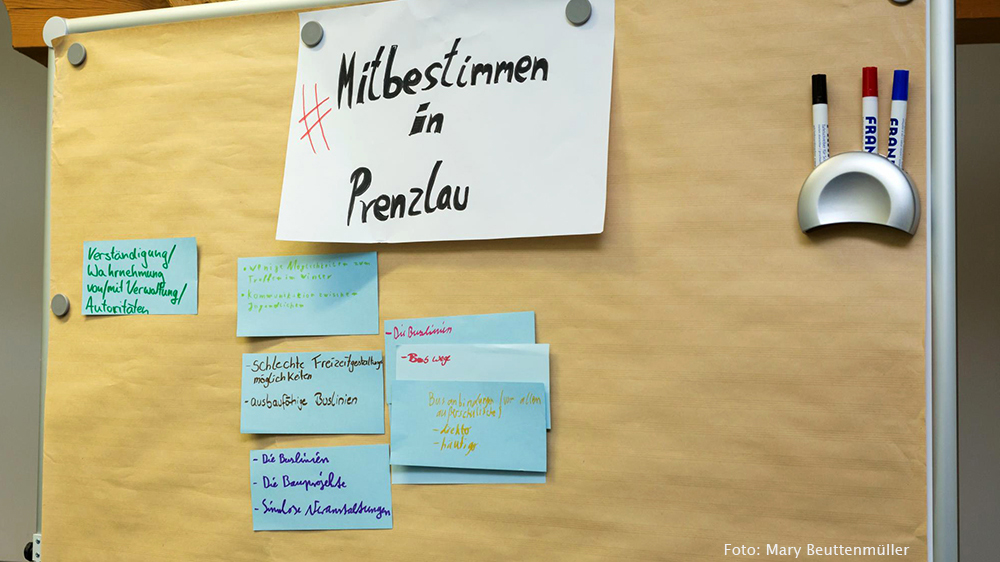 # Mitbestimmen
in
Prenzlau
FRAN
FRAN
Verständigung/
Wahrnehmung
von/mit Verwaltung/
Autoritäten
• Wenige Möglichkeiten zum
Treffen im Winter
• Kommunikation zwischen
Jugendlichen
- Schlechte Freizeitgestaltungs
möglichkeiten
- ausbaufähige Buslinien
- Die Buslinien
- Die Bauprojekte
- Sinnlose Veranstaltungen
- Die Buslinien
- Bus wege
Busanbindungen (vor allem
außerschulische)
- direkte
- häufige
Foto: Mary Beuttenmüller